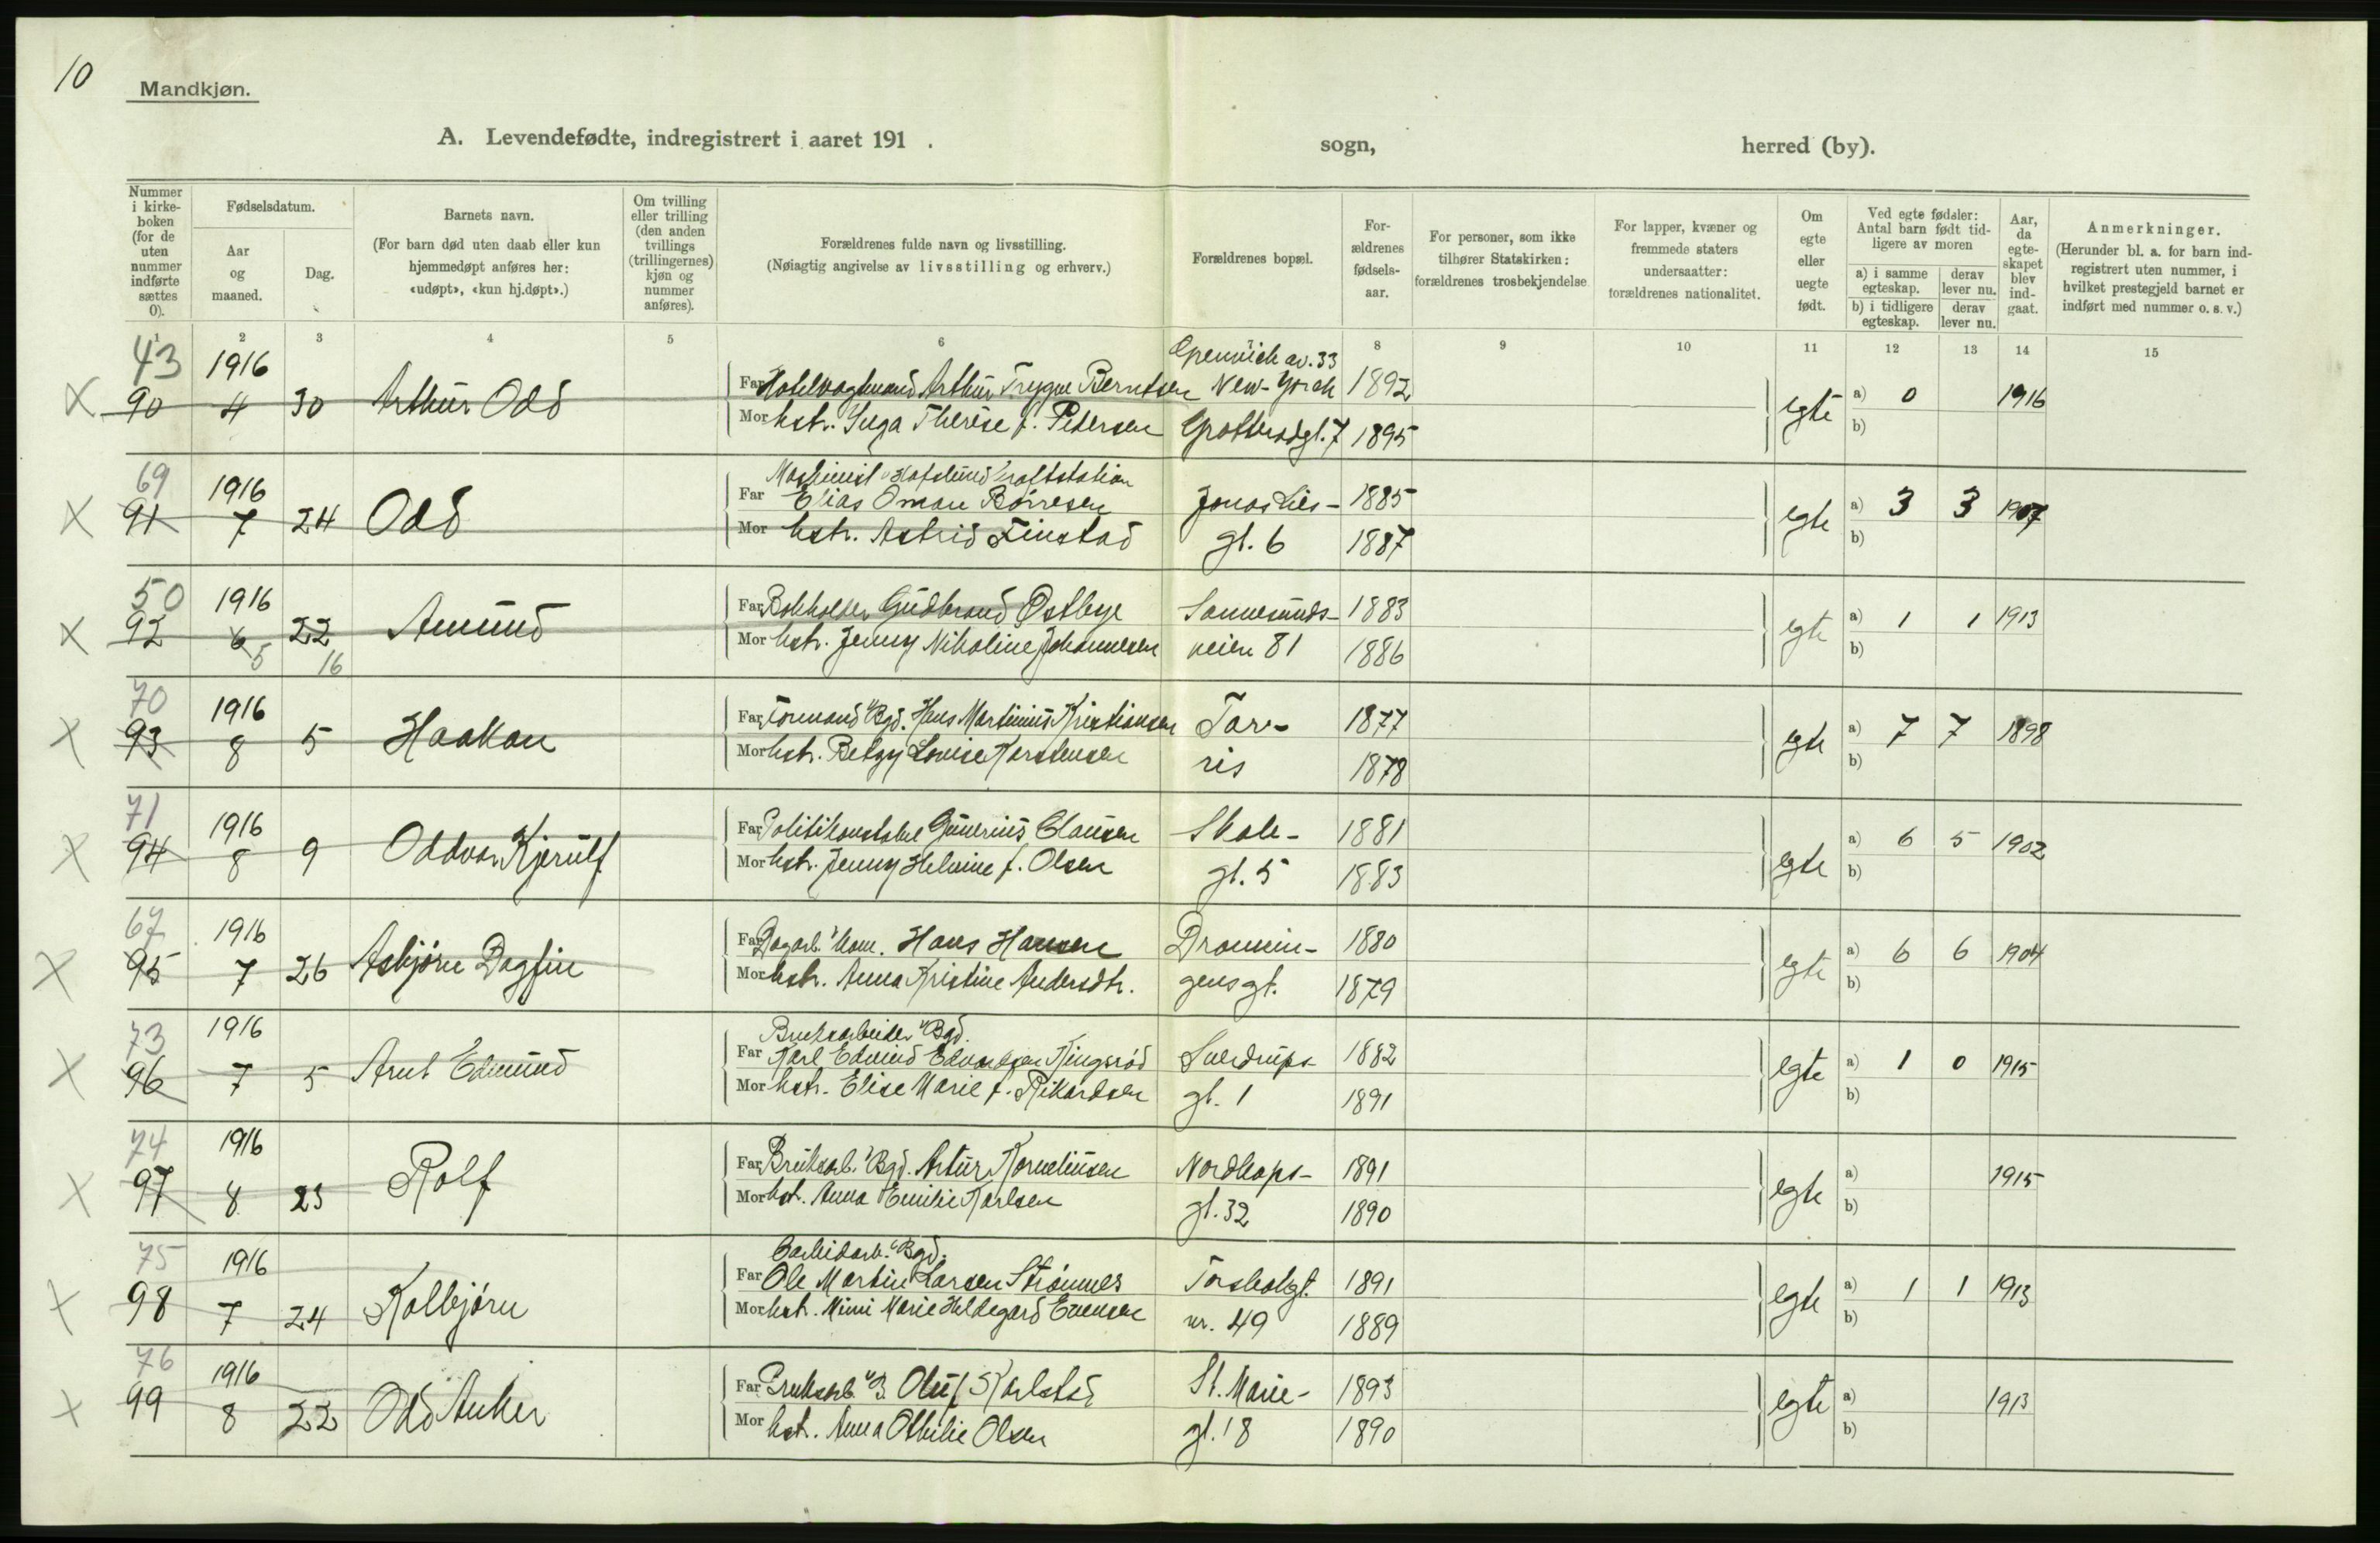 10
Mandkjøn.
A. Levendefødte, indregistrert i aaret 191 . sogn, herred (by).
Nummer i kirke-boken (for de uten nummer indførte sættes 0).
Fødselsdatum.
Aar og maaned.
Dag.
Barnets navn.
(For barn død uten daab eller kun hjemmedøpt anføres her: «udøpt», «kun hj.døpt».)
Om tvilling eller trilling (den anden tvillings (trillingernes) kjøn og nummer anføres).
Forældrenes fulde navn og livsstilling.
(Nøiagtig angivelse av livsstilling og erhverv.)
Forældrenes bopæl.
For-ældrenes fødsels-aar.
For personer, som ikke tilhører Statskirken: forældrenes trosbekjendelse
For lapper, kvæner og fremmede staters undersaatter: forældrenes nationalitet.
Om egte eller uegte født.
Ved egte fødsler: Antal barn født tid-ligere av moren
a) i samme egteskap.
derav lever nu.
b) i tidligere egteskap.
derav lever nu.
Aar, da egte-skapet blev ind-gaat.
Anmerkninger.
(Herunder bl. a. for barn ind-registrert uten nummer, i hvilket prestegjeld barnet er indført med nummer o. s. v.)
1 2 3 4 5 6 8 9 10 11 12 13 14 15
43 1916 Grenwich av. 33
X 90 4 30 Arthur Odd Far Arthur Trygve Berntsen New-York 1892 egte a) 0 1916
Mor hstr. Inga Therese f. Petersen Grotterødgt. 7 1895 b)
69 1916 Maskinist v/Hafslund Kraftstation
X 91 7 24 Odd Far Elias Oman Børresen Jonas Lies- 1885 egte a) 3 3 1907
Mor hstr. Astrid Finstad gt. 6 1887 b)
50 1916 Far Bokholder Gudbrand Østbye Sannesunds- 1883 a) 1 1 1913
X 92 6 22 Amund Mor hstr. Jenny Nikoline Johannesen veien 81 1886 egte b)
5 16
70 1916 Far Formand v/Bgd. Hans Martinius Kristiansen Tar- 1877 a) 7 7 1898
X 93 8 5 Haakon Mor hstr. Betzy Lovise Karstensen ris 1878 egte b)
71 1916 Far Politikonstabel Gunerius Clausen Skole- 1881 a) 6 5 1902
X 94 8 9 Oddvar Kjerulf Mor hstr. Jenny Helmine f. Olsen gt. 5 1883 egte b)
67 1916 Far Dagarb. i kom. Hans Hansen Dronnin- 1880 a) 6 6 1904
X 95 7 26 Asbjørn Dagfin Mor hstr. Anna Kristine Andersdtr. gensgt. 1879 egte b)
73 1916 Bruksarbeider v/Bgd.
X 96 7 5 Arnt Edmund Far Karl Edvind Edvardsen Ringsrød Sverdrups- 1882 egte a) 1 0 1915
Mor hstr. Elise Marie f. Rikardsen gt. 1 1891 b)
74 1916 Far Bruksarb. v/Bgd. Artur Korneliusen Nordkaps- 1891 a) 1915
X 97 8 23 Rolf Mor hst. Anna Emilie Karlsen gt. 32 1890 egte b)
75 1916 Carbidarb. v/Bgd.
X 98 7 24 Kolbjørn Far Ole Martin Larsen Strømnes Torsbekgt. 1891 egte a) 1 1 1913
Mor hst. Mimi Marie Hildegard Evensen nr. 49 1889 b)
76 1916 Far Bruksarb. v/B. Oluf Karlstad St. Marie- 1893 egte a) 1913
X 99 8 22 Odd Anker Mor hst. Anna Othilie Olsen gt. 18 1890 b)